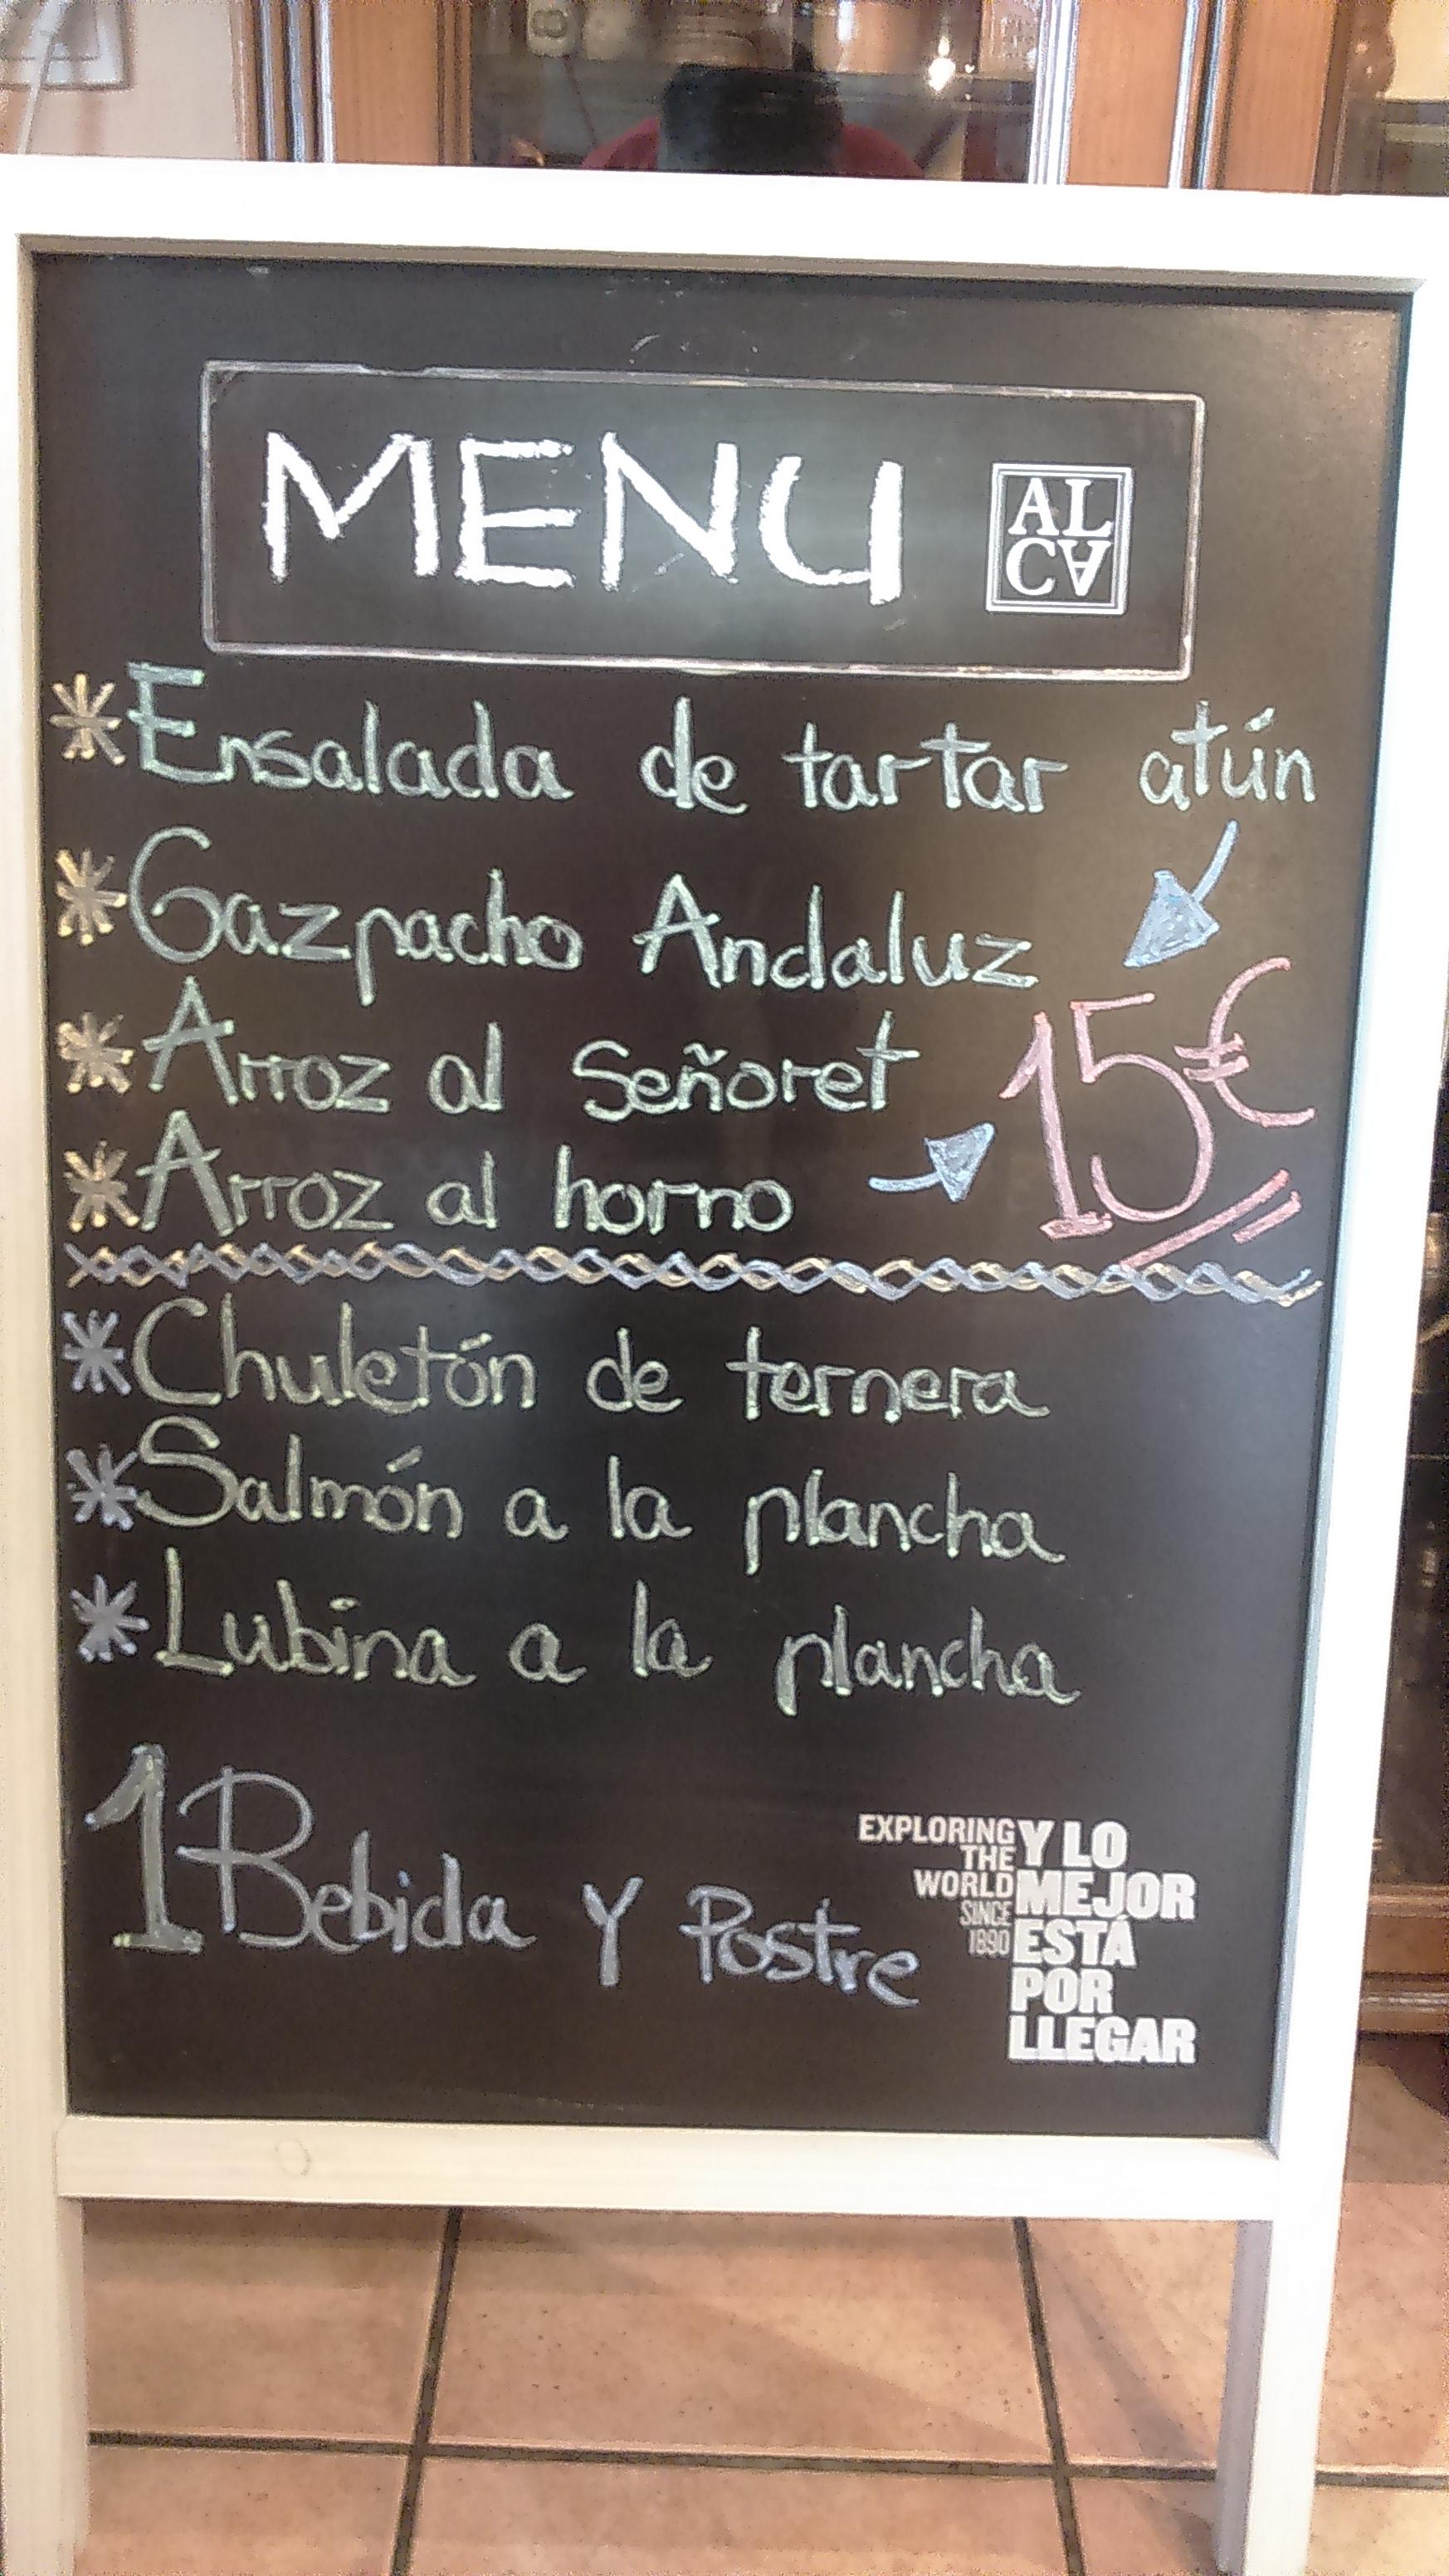 MENU
AL
CA
*Ensalada de tartar atún
*Gazpacho Andaluz
*Arroz al Señoret
15€
*Arroz al horno
*Chuletón de ternera
*Salmón a la plancha
*Lubina a la plancha
1 Bebida Y Postre
EXPLORING
THE
WORLD
SINCE
1890
Y LO
MEJOR
ESTÁ
POR
LLEGAR